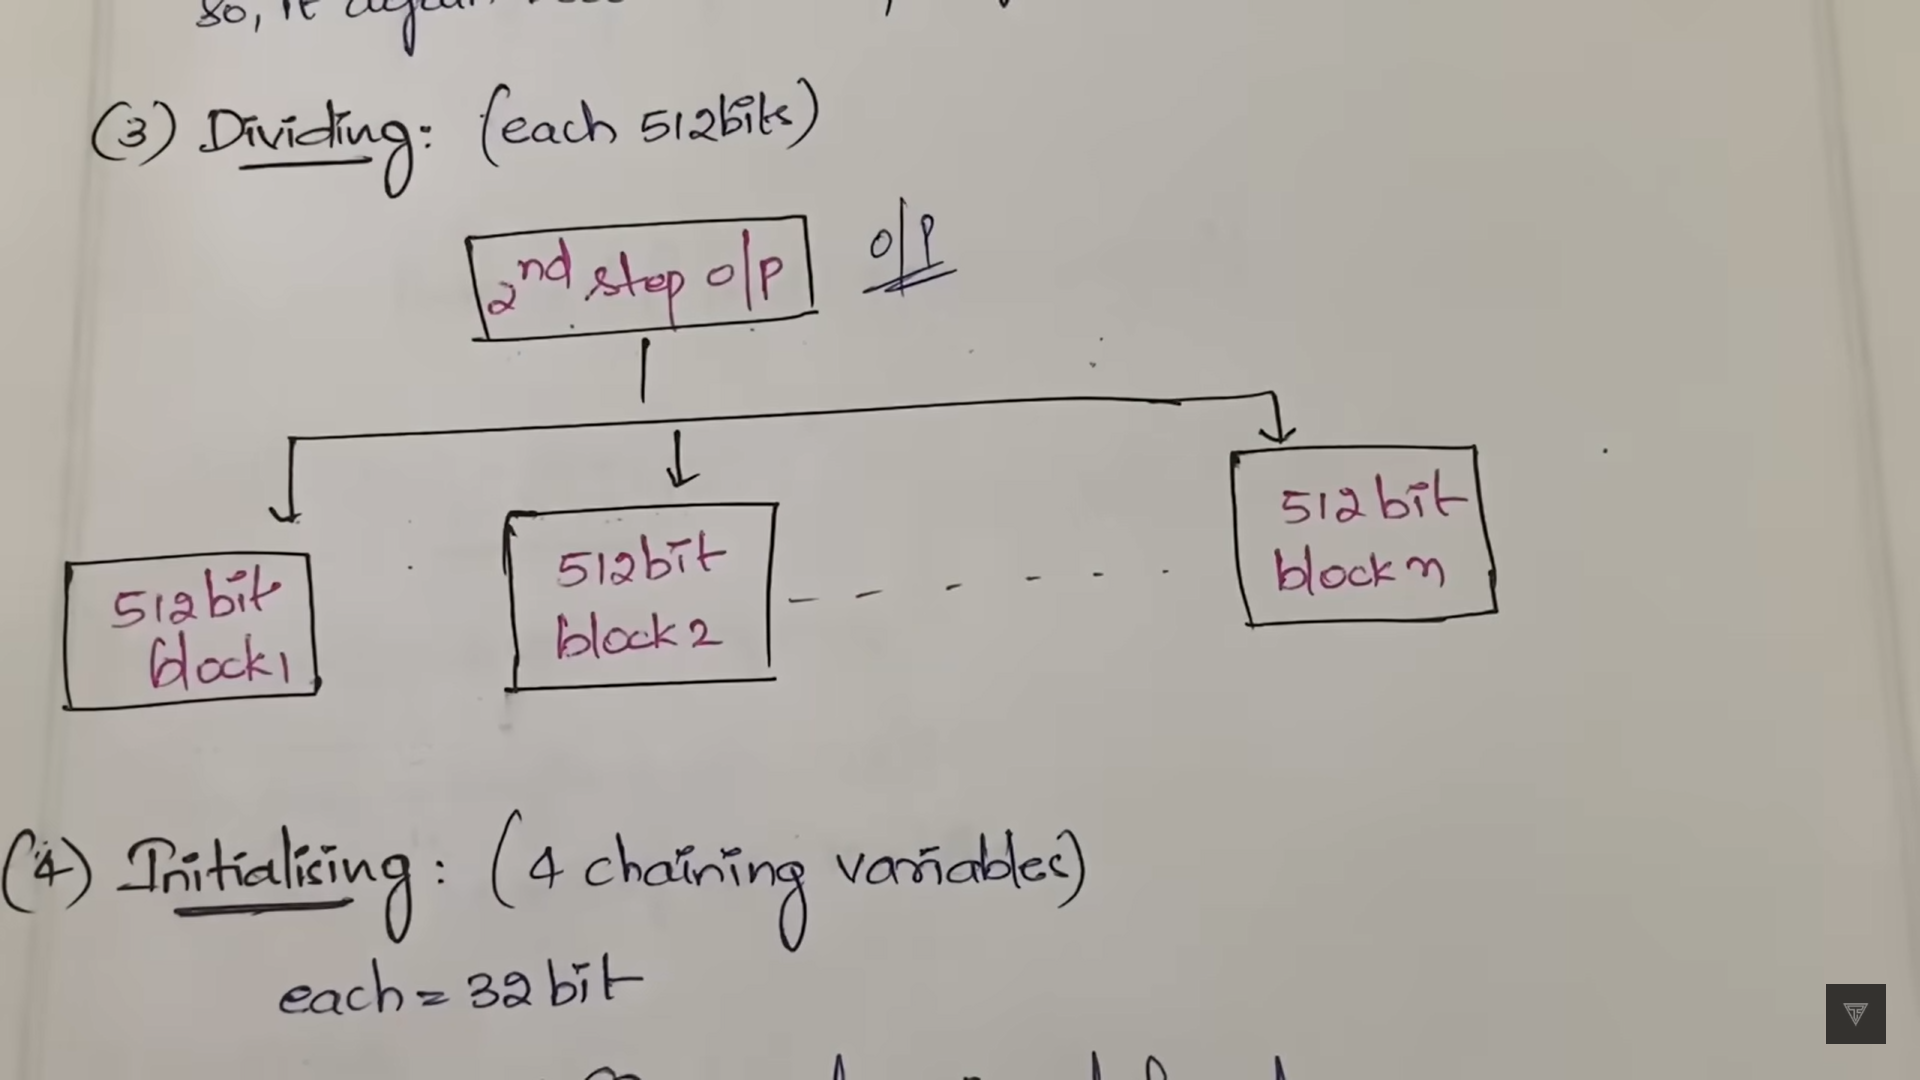 so, it again
(3) Dividing: (each 512bits)
2nd step o/p
o/p
512bit
block1
512bit
block2
512bit
block n
(4) Initialising: (4 chaining variables)
each = 32bit